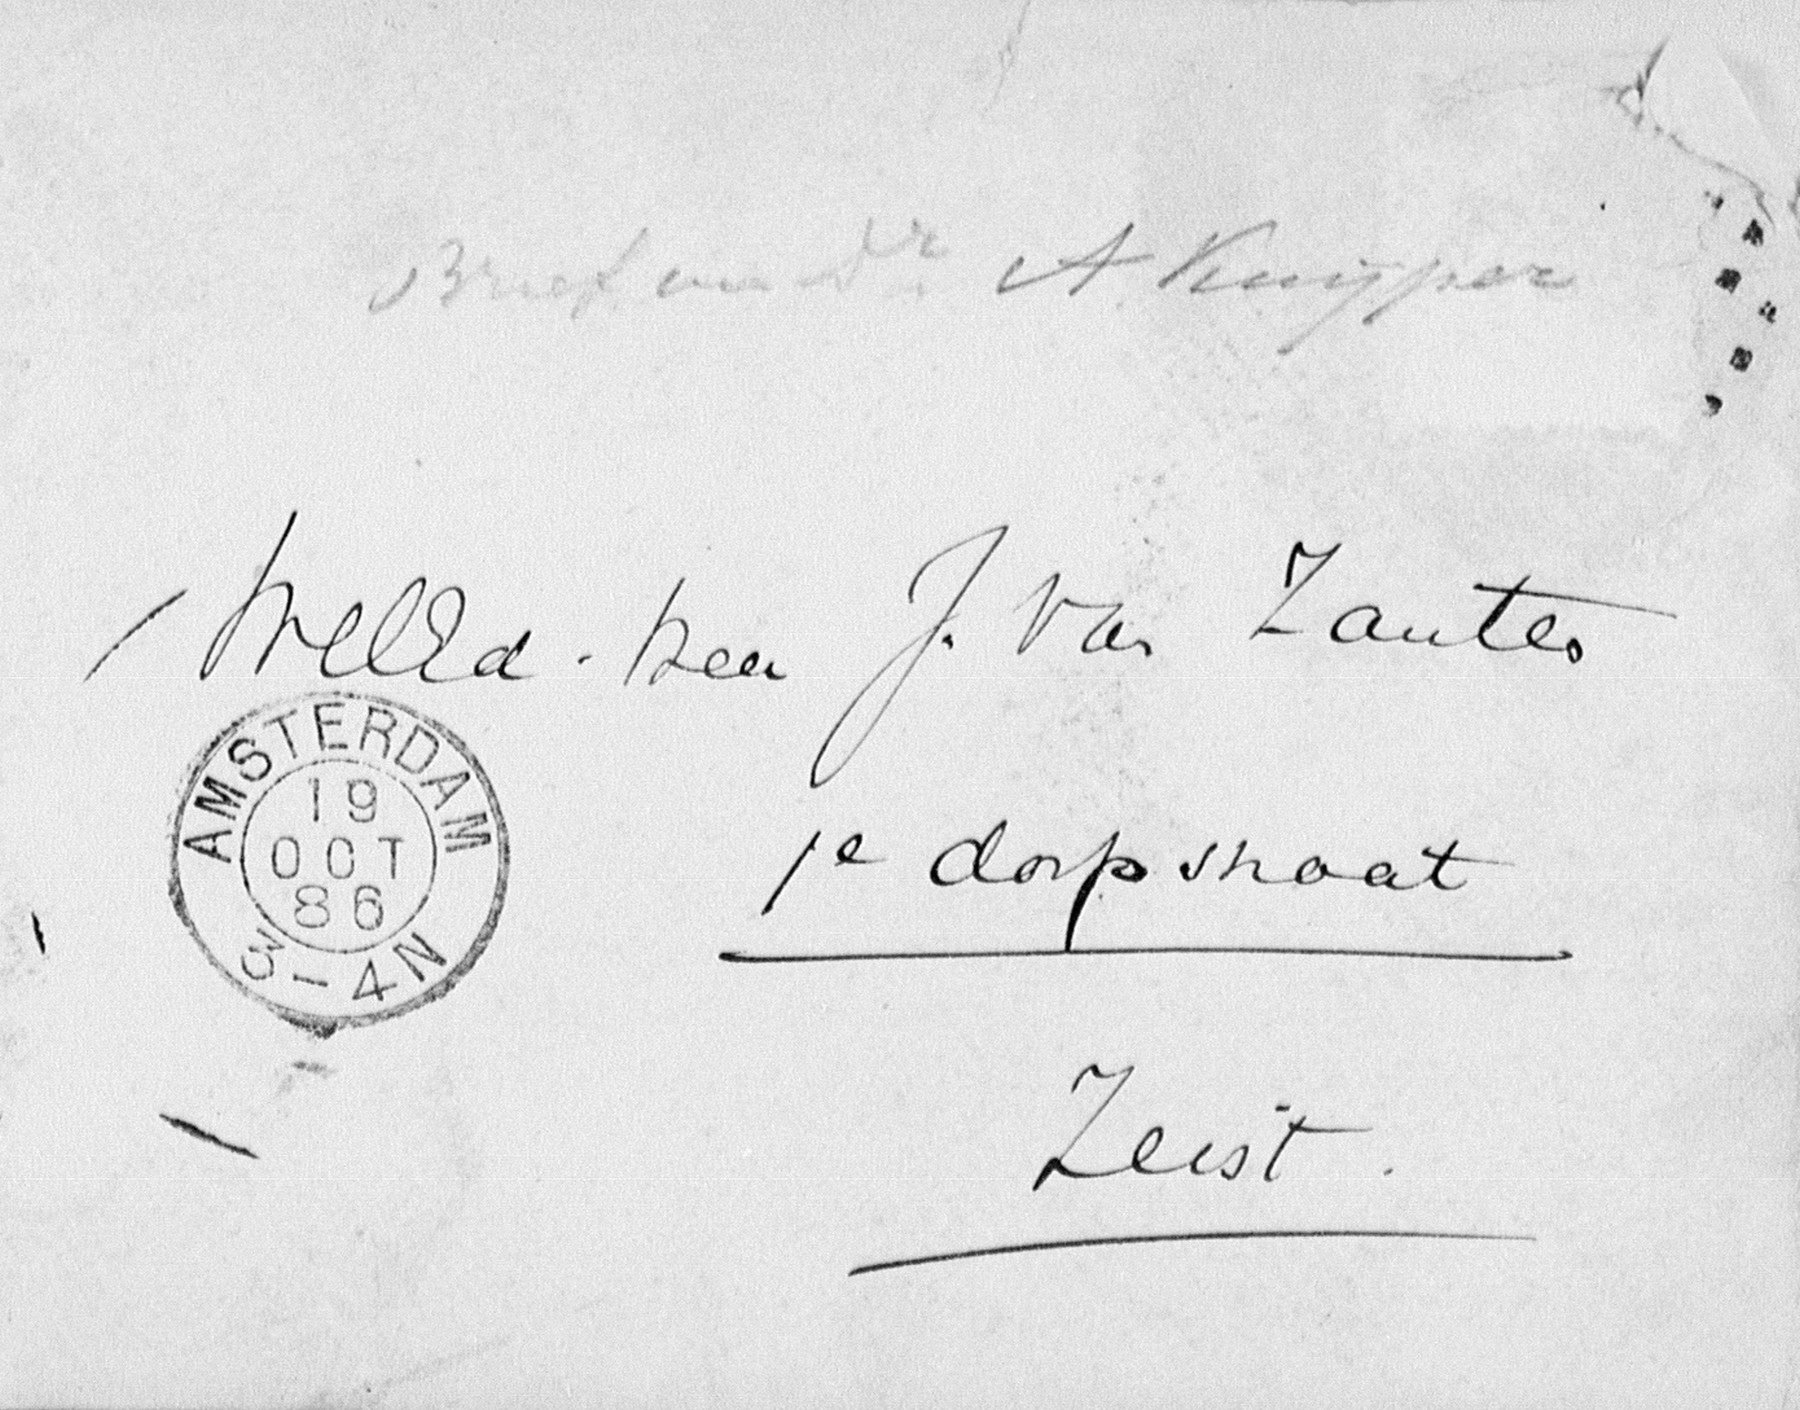 Brief van Dr A Kuyper
WelEd. heer J. van Zanten
1e dorpstraat
Zeist.
AMSTERDAM
19
OCT
86
3-4N